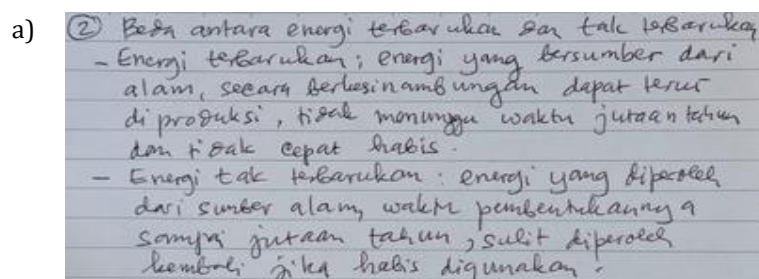 a)
② Beda antara energi terbarukan dan tak terbarukan
- Energi terbarukan; energi yang bersumber dari
alam, secara berkesinambungan dapat terus
diproduksi, tidak menunggu waktu jutaan tahun
dan tidak cepat habis.
- Energi tak terbarukan: energi yang diperoleh
dari sumber alam, waktu pembentukannya
sampai jutaan tahun, sulit diperoleh
kembali jika habis digunakan.